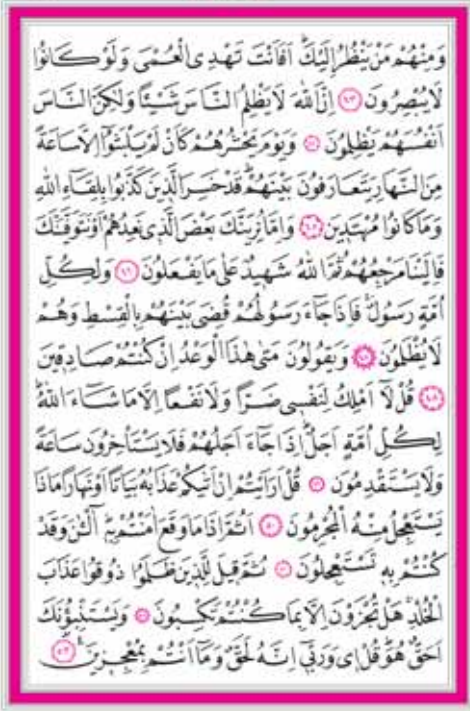 وَمِنْهُمْ مَنْ يَنْظُرُ اِلَيْكَۜ اَفَاَنْتَ تَهْدِي الْعُمْيَ وَلَوْ كَانُوا
لَا يُبْصِرُونَ ﴿٤٣﴾ اِنَّ اللّٰهَ لَا يَظْلِمُ النَّاسَ شَيْـًٔا وَلٰكِنَّ النَّاسَ
اَنْفُسَهُمْ يَظْلِمُونَ ﴿٤٤﴾ وَيَوْمَ يَحْشُرُهُمْ كَاَنْ لَمْ يَلْبَثُٓوا اِلَّا سَاعَةً
مِنَ النَّهَارِ يَتَعَارَفُونَ بَيْنَهُمْۜ قَدْ خَسِرَ الَّذِينَ كَذَّبُوا بِلِقَٓاءِ اللّٰهِ
وَمَا كَانُوا مُهْتَدِينَ ﴿٤٥﴾ وَاِمَّا نُرِيَنَّكَ بَعْضَ الَّذِي نَعِدُهُمْ اَوْ نَتَوَفَّيَنَّكَ
فَاِلَيْنَا مَرْجِعُهُمْ ثُمَّ اللّٰهُ شَهِيدٌ عَلٰى مَا يَفْعَلُونَ ﴿٤٦﴾ وَلِكُلِّ
اُمَّةٍ رَسُولٌۚ فَاِذَا جَٓاءَ رَسُولُهُمْ قُضِيَ بَيْنَهُمْ بِالْقِسْطِ وَهُمْ
لَا يُظْلَمُونَ ﴿٤٧﴾ وَيَقُولُونَ مَتٰى هٰذَا الْوَعْدُ اِنْ كُنْتُمْ صَادِقِينَ
﴿٤٨﴾ قُلْ لَٓا اَمْلِكُ لِنَفْسِي ضَرًّا وَلَا نَفْعًا اِلَّا مَا شَٓاءَ اللّٰهُۜ
لِكُلِّ اُمَّةٍ اَجَلٌۜ اِذَا جَٓاءَ اَجَلُهُمْ فَلَا يَسْتَأْخِرُونَ سَاعَةً
وَلَا يَسْتَقْدِمُونَ ﴿٤٩﴾ قُلْ اَرَاَيْتُمْ اِنْ اَتٰيكُمْ عَذَابُهُ بَيَاتًا اَوْ نَهَارًا مَاذَا
يَسْتَعْجِلُ مِنْهُ الْمُجْرِمُونَ ﴿٥٠﴾ اَثُمَّ اِذَا مَا وَقَعَ اٰمَنْتُمْ بِهِۜ آٰلْـٰٔنَ وَقَدْ
كُنْتُمْ بِهِ تَسْتَعْجِلُونَ ﴿٥١﴾ ثُمَّ قِيلَ لِلَّذِينَ ظَلَمُوا ذُوقُوا عَذَابَ
الْخُلْدِۚ هَلْ تُجْزَوْنَ اِلَّا بِمَا كُنْتُمْ تَكْسِبُونَ ﴿٥٢﴾ وَيَسْتَنْبِؤُ۫نَكَ
اَحَقٌّ هُوَۜ قُلْ اِي وَرَبِّٓي اِنَّهُ لَحَقٌّ وَمَٓا اَنْتُمْ بِمُعْجِزِينَ ﴿٥٣﴾